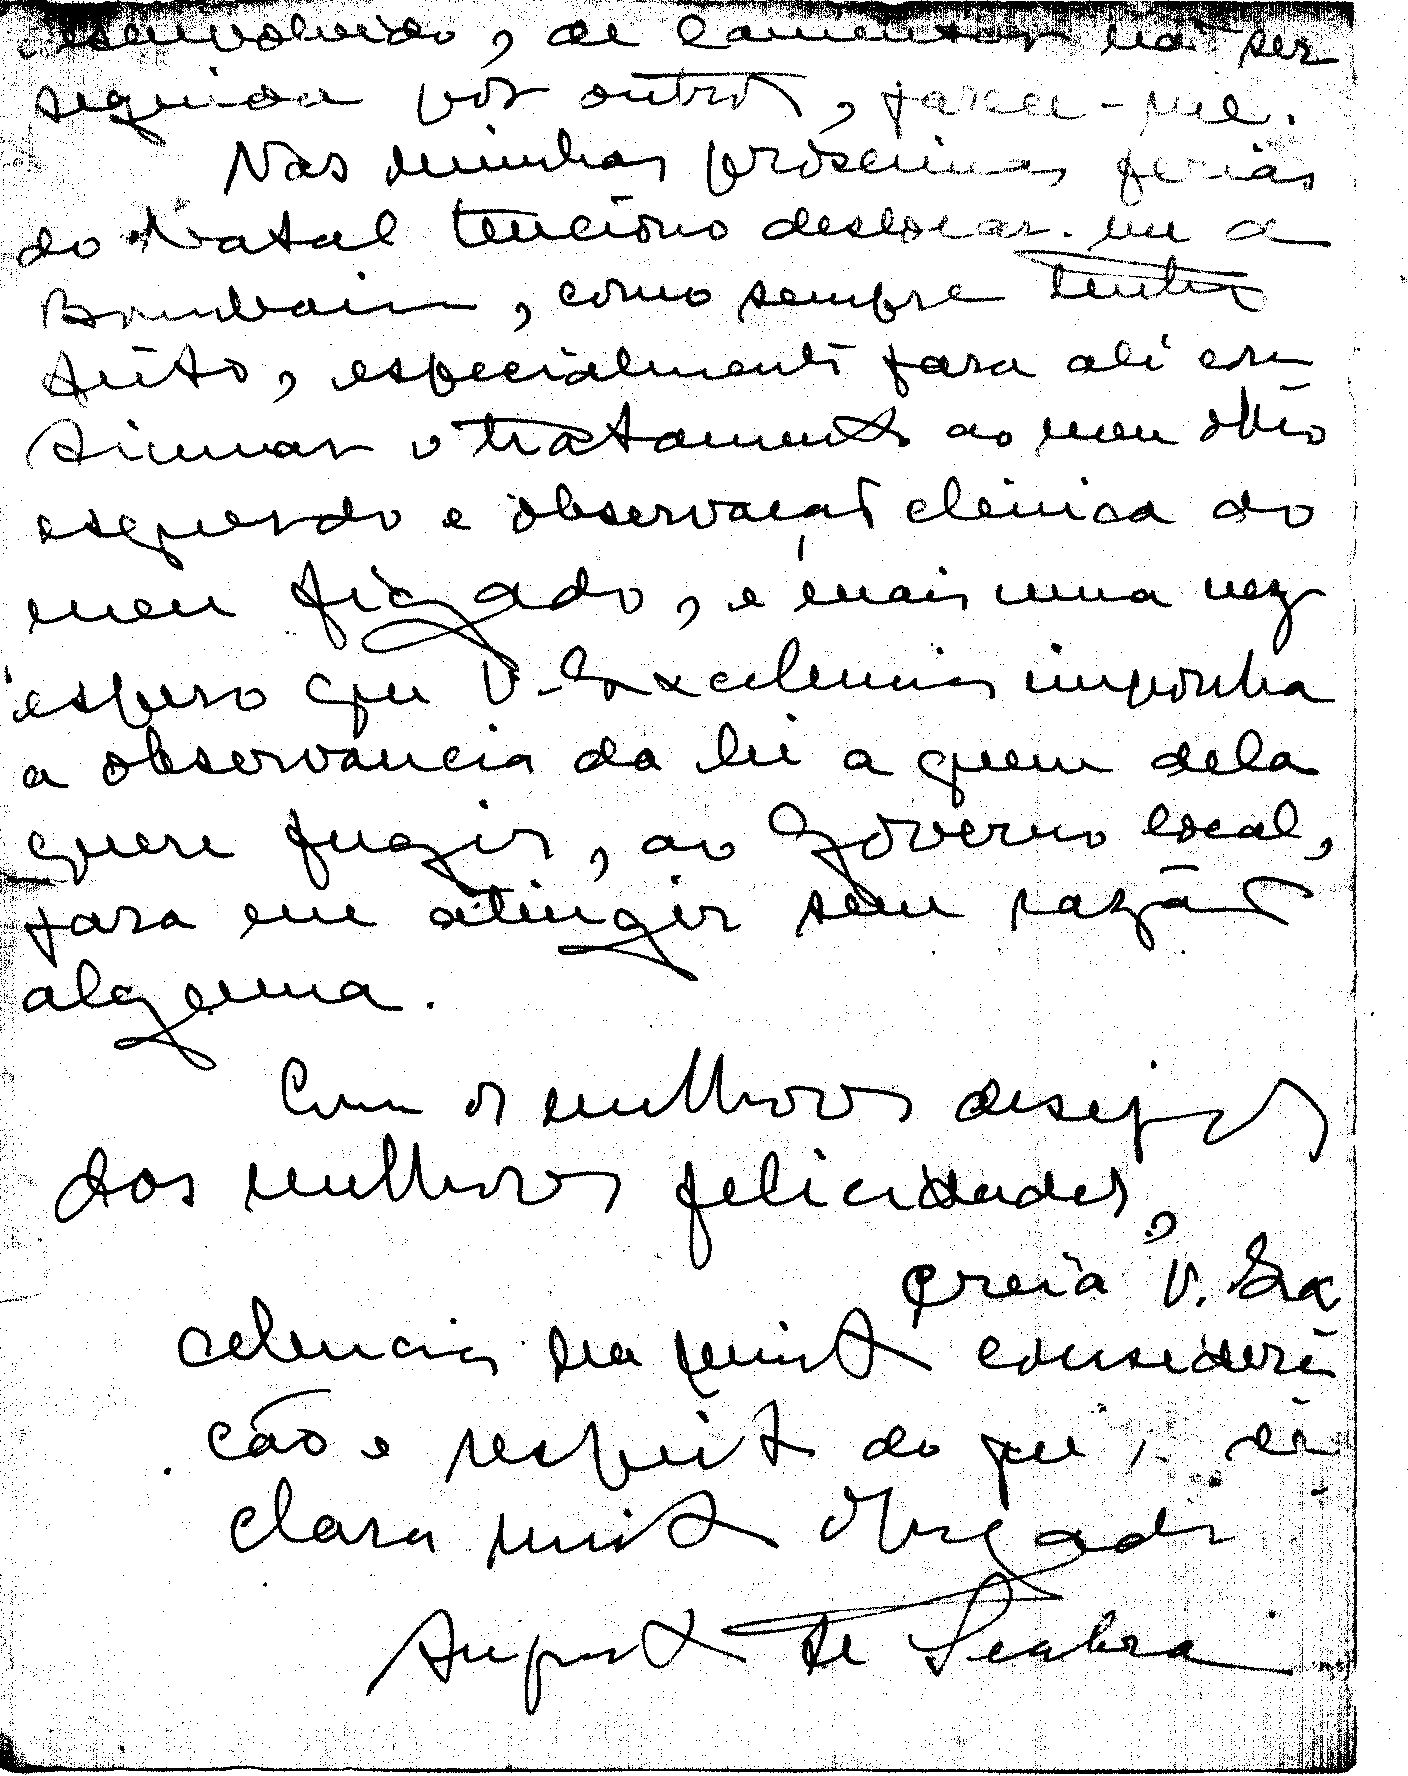 desenvolvido, de lamentar não ser
seguida por outros, parece-me.
Nas minhas próximas ferias
do Natal tenciono deslocar-me a
Bombaim, como sempre tenho
feito, especialmente para ali con
tinuar o tratamento ao meu ólho
esquerdo e observação clinica do
meu figado, e mais uma vez
espero que V. Excelencia imponha
a observancia da lei a quem dela
quere fugir, ao Govêrno local,
para me atingir sem razão
alguma.
Com os melhores desejos
das melhores felicidades,
creia V. Ex
celencia na muita considera
ção e respeito do que, se de
clara muito obrigado
Augusto de Seabra